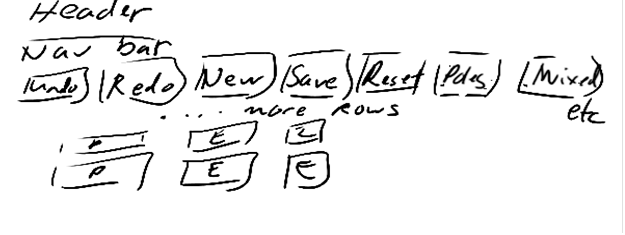 Header
Nav bar
Undo Redo New Save Reset Pdes. Mixed
.... more rows etc
E
P E E